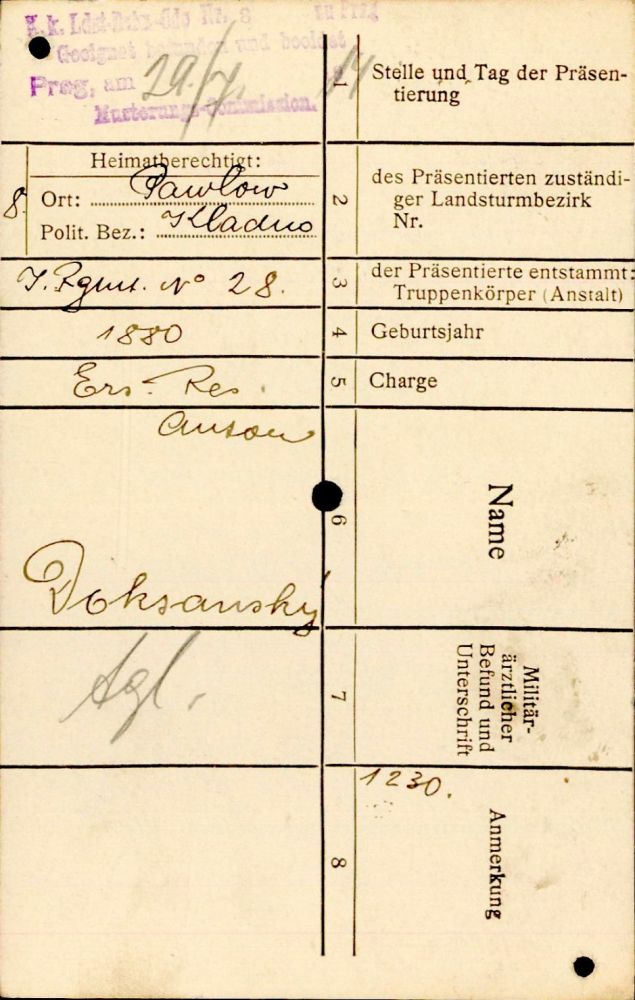 K. k. Ldst. Bez. Kdo Nr. 8 zu Prag
Geeignet befunden und beeidet
Prag, am 29/7. 14
Musterungs-Commission.
1
Stelle und Tag der Präsen-
tierung
Heimatberechtigt:
8 Ort: Pawlow
Polit. Bez.: Kladno
2
des Präsentierten zuständi-
ger Landsturmbezirk
Nr.
J. Rgmt. No 28.
3
der Präsentierte entstammt:
Truppenkörper (Anstalt)
1880
4
Geburtsjahr
Ers. Res.
5
Charge
Anton
Doksansky
6
Name
tgl.
7
Militär-
ärztlicher
Befund und
Unterschrift
8
1230.
Anmerkung